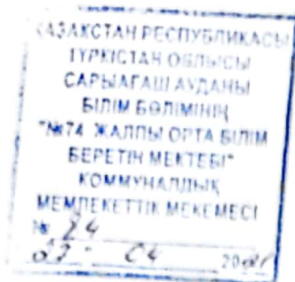 ҚАЗАҚСТАН РЕСПУБЛИКАСЫ
ТҮРКІСТАН ОБЛЫСЫ
САРЫАҒАШ АУДАНЫ
БІЛІМ БӨЛІМІНІҢ
"№74 ЖАЛПЫ ОРТА БІЛІМ
БЕРЕТІН МЕКТЕБІ"
КОММУНАЛДЫҚ
МЕМЛЕКЕТТІК МЕКЕМЕСІ
№ 24
04 20